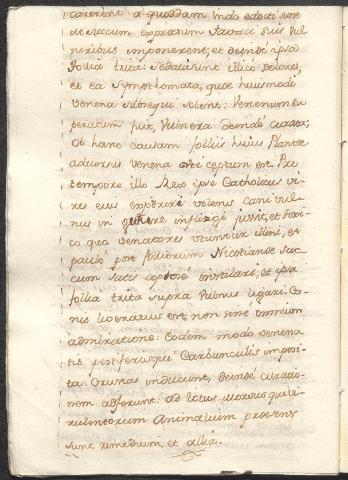 carerent a quoddam Indo edocti sunt
ut succum expressum Tabaci suis vul
neribus imponerent, et deinde ipsa
follia trita: sedati sunt illico dolores,
et ea sympthomata, quæ huiusmodi
venena subsequi solent: Venenum su
peratum fuit, Vulnera deinde curata;
Ob hanc causam foliis huius Plantæ
adversus venena uti cęptum est. Præ
tempore illo Rex ipse Catholicus vi
res eius experiri volens cani vul
nus in guture infligi jussit, et toxi
co quo venatores utuntur illini, et
paulo post foliorum Nicotianæ suc
cum satis copiosè instillari, et ipsa
follia trita supra Vulnus ligari. Ca
nis liberatus est non sine omnium
admiratione. Eodem modo venena
tis pestiferisque Carbunculis imposi
ta Crustas inducunt, deinde curatio
nem adferunt. ad ictus morsus que vi
rulentorum Animalium præsens
sunt remedium, et alia.